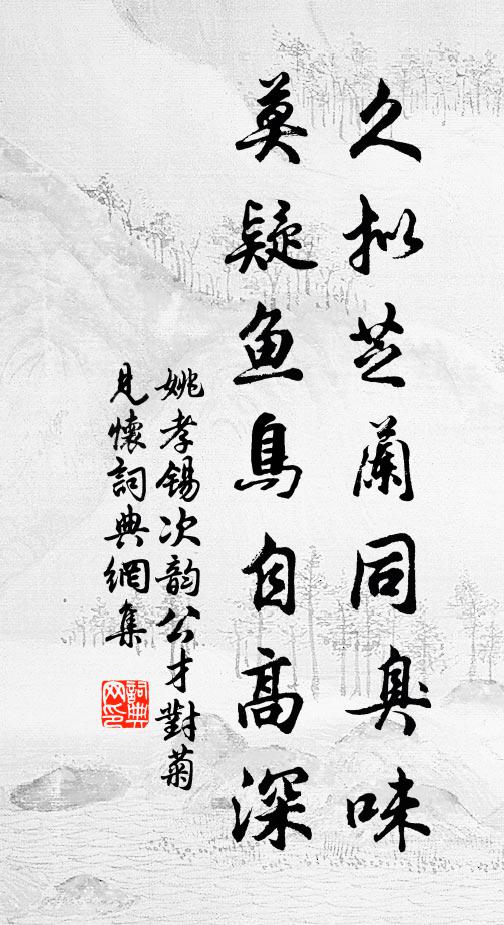 久拟芝蘭同臭味
莫疑鱼鳥自高深
姚孝锡次韵公才對菊
見懷詞典網集
詞典网印